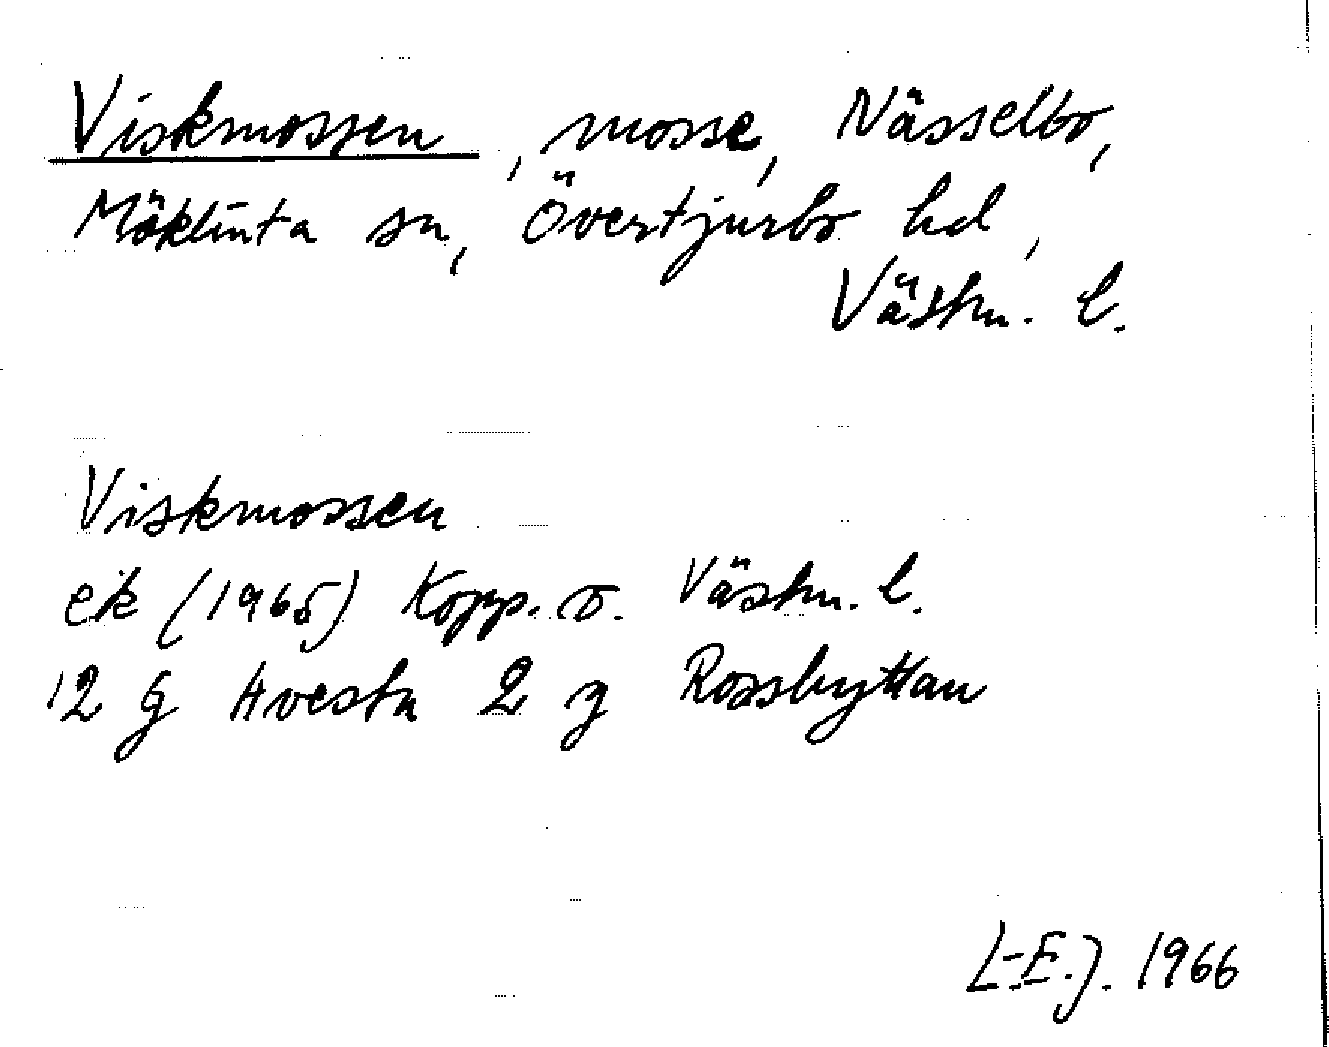 Viskmossen, mosse, Nässelbo,
Möklinta sn, Övertjurbo hd,
Västm. l.
Viskmossen
ek (1965) Kopp. o. Västm. l.
12 G Avesta 2 g Rossbyttan
L-E.J. 1966